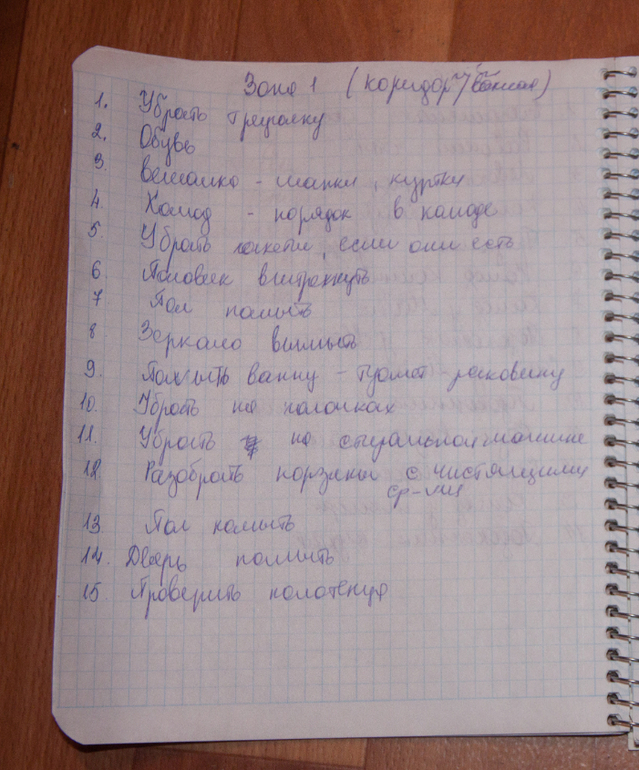 Зона 1 (коридор/ванная)
1. Убрать трюмку
2. Обувь
3 Вешалка - шапки, куртки
4. Комод - порядок в комоде
5 Убрать пакеты, если они есть
6 Половик вытряхнуть
7 Пол помыть
8 Зеркало вымыть
9 Помыть ванну - туалет - раковину
10. Убрать на полочках
11. Убрать на стиральной машине
12 Разобрать корзины с чистящими
ср-ми
13 Пол помыть
14 Дверь помыть
15 Проверить полотенца